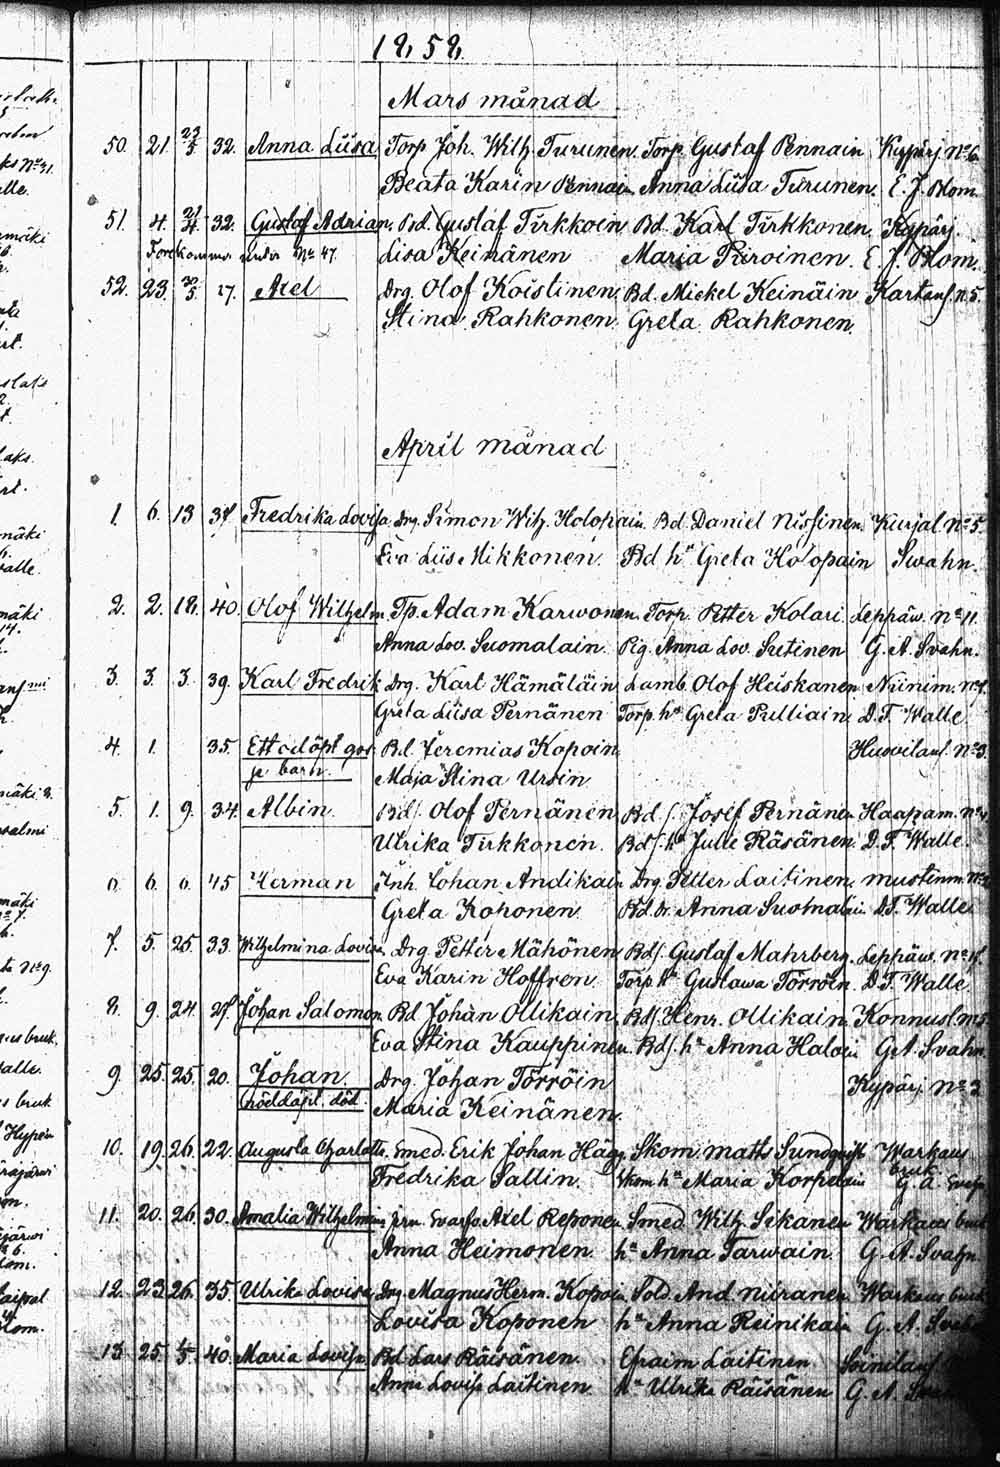 1858.
Mars månad
50. 21. 23/5 32. Anna Liisa Torp Joh. Wilh. Turunen. Torp. Gustaf Pennain Kypärj. No 6.
Beata Karin Pennain Anna Liisa Turunen. E. J. Blom.
51. 4. 21/4 32. Gustaf Adrian. Bd. Gustaf Tirkkoin Bd. Karl Tirkkonen Kypärj.
Förekommer under No 47. Lisa Keinänen Maria Piiroinen. E. J. Blom.
52. 23. 27. Axel Drg. Olof Koistinen Bd. Mickel Keinäin Kartans. n. 5.
Stina Rahkonen Greta Rahkonen.
April månad
1. 6. 13 Fredrika Lovisa Drg. Simon Wilh. Holopain Bd. Daniel Nissinen Kurjal. No 5.
Eva Liis Mikkonen. Bd hu Greta Holopain Swahn.
2. 2. 18. 40. Olof Wilhelm Tp. Adam Karwonen. Torp. Petter Kolari. Leppäw. No 11.
Anna Lov. Suomalain. Pig. Anna Lov. Sutinen G. A. Svahn.
3. 3. 3. 39. Karl Fredrik Drg. Karl Hämäläin Lamb. Olof Heiskanen Niinim. No
Greta Liisa Pernänen Torp. hu Greta Pulliain D. F. Walle
4. 1. 35. Ett odöpt gos Bd. Jeremias Kopoin Huovilans. No 3.
se barn. Maja Stina Ursin
5. 1. 9. 34. Albin. Bds. Olof Pernänen Bd. s. Josef Pernänen Haapam. No
Ulrika Tirkkonen. Bds. hu Julie Räsänen. D. F. Walle.
6. 6. 6. 45 Herman Inh. Johan Andikain Drg. Petter Laitinen. Mustinm. No
Greta Koponen Bd. dr. Anna Suomalain. D. F. Walle
7. 5. 25. 33. Wilhelmina Lovisa Drg. Petter Mähönen Bds. Gustaf Mahrberg. Leppäw. No
Eva Karin Hoffren Torp. hu Gustawa Törröin. D. F. Walle
8. 9. 24. Johan Salomon. Bd Johan Ollikain Bds. Henr. Ollikain Konnusl.
Eva Stina Kauppinen. Bds. hu Anna Haloin G. A. Svahn.
9. 25. 25. 20. Johan. Drg. Johan Törröin Kypärj. No 3
nöddöpt. död. Maria Keinänen.
10. 19. 26. 22. Augusta Charlotta. Smed. Erik Johan Hägg. Skom. Matts Sundqvist Warkaus
bruk.
Fredrika Sallin. Skom hu Maria Korpelain G. A. Svahn
11. 20. 26. 30. Amalia Wilhelmina Axel Reponen Smed. Wilh. Sikanen Warkaus bruk
Anna Heimonen. hu Anna Tarwain. G. A. Svahn.
12. 23. 26. 35. Ulrika Lovisa Drg. Magnus Herm. Kopoin Sold. And. Niiranen Warkaus bruk
Lovisa Koponen hu Anna Reinikain G. A. Svahn
13. 25. 1/5 40. Maria Lovisa Bd. Lars Räisänen. Efraim Laitinen Soinilans.
Anna Lovisa Laitinen. hu Ulrika Räisänen G. A.